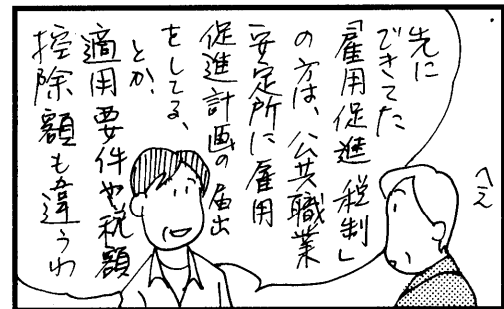 先に
できてた
「雇用促進税制」
の方は、公共職業
安定所に雇用
促進計画の届出
をしてる、
とか、
適用要件や税額
控除額も違うわ
へえ